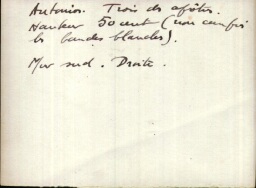 Antonio. Trois des apôtres.
Hauteur 50 cent (non compris
les bandes blanches).
Mur sud. Droite.